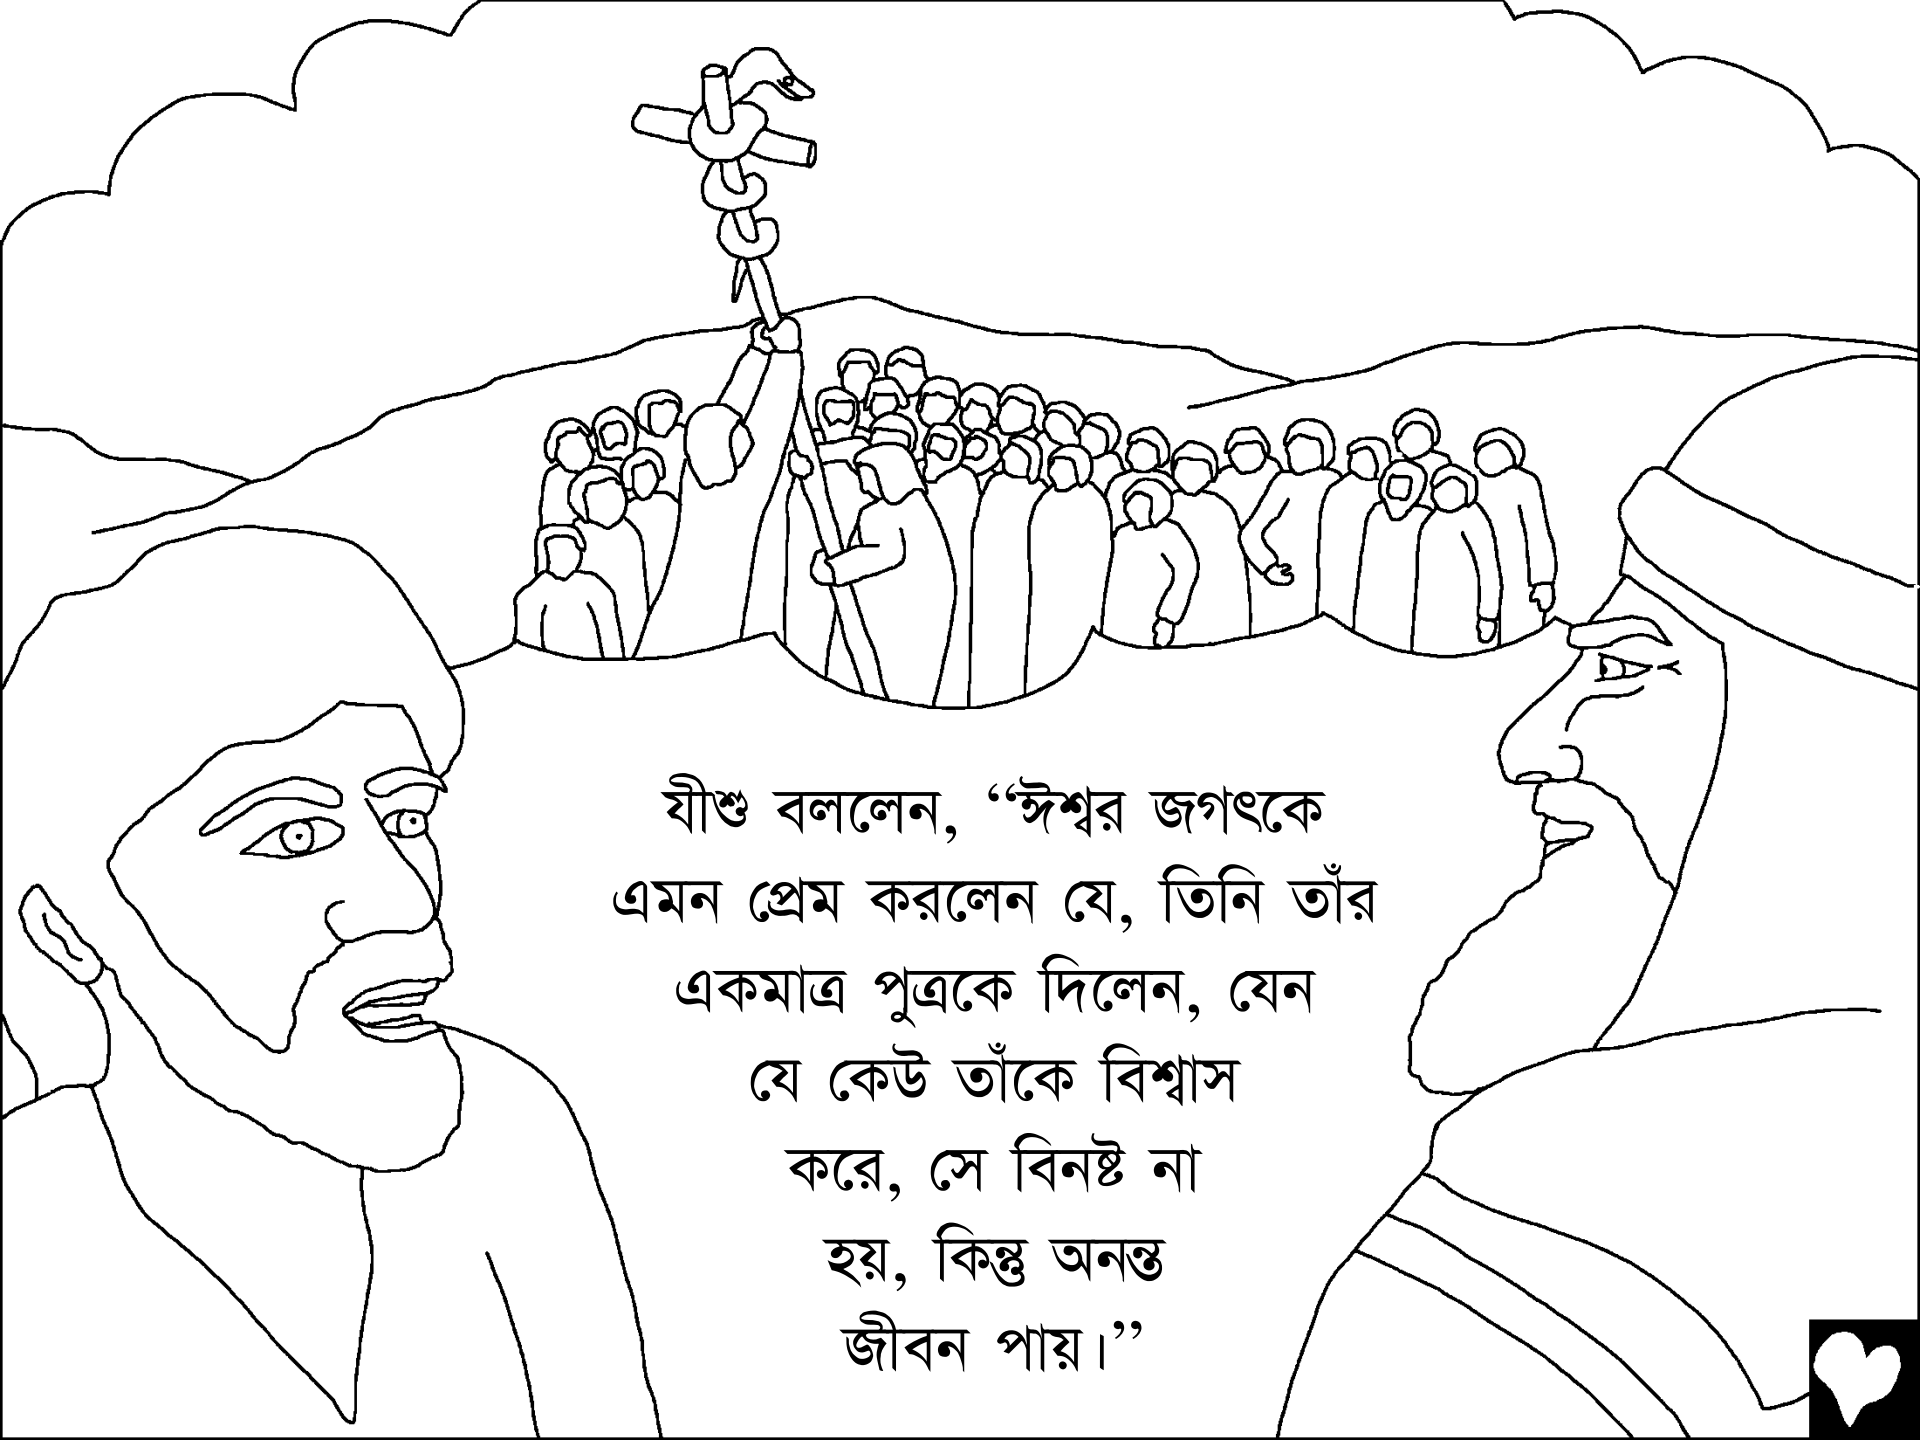 যীশু বললেন, “ঈশ্বর জগৎকে
এমন প্রেম করলেন যে, তিনি তাঁর
একমাত্র পুত্রকে দিলেন, যেন
যে কেউ তাঁকে বিশ্বাস
করে, সে বিনষ্ট না
হয়, কিন্তু অনন্ত
জীবন পায়।”